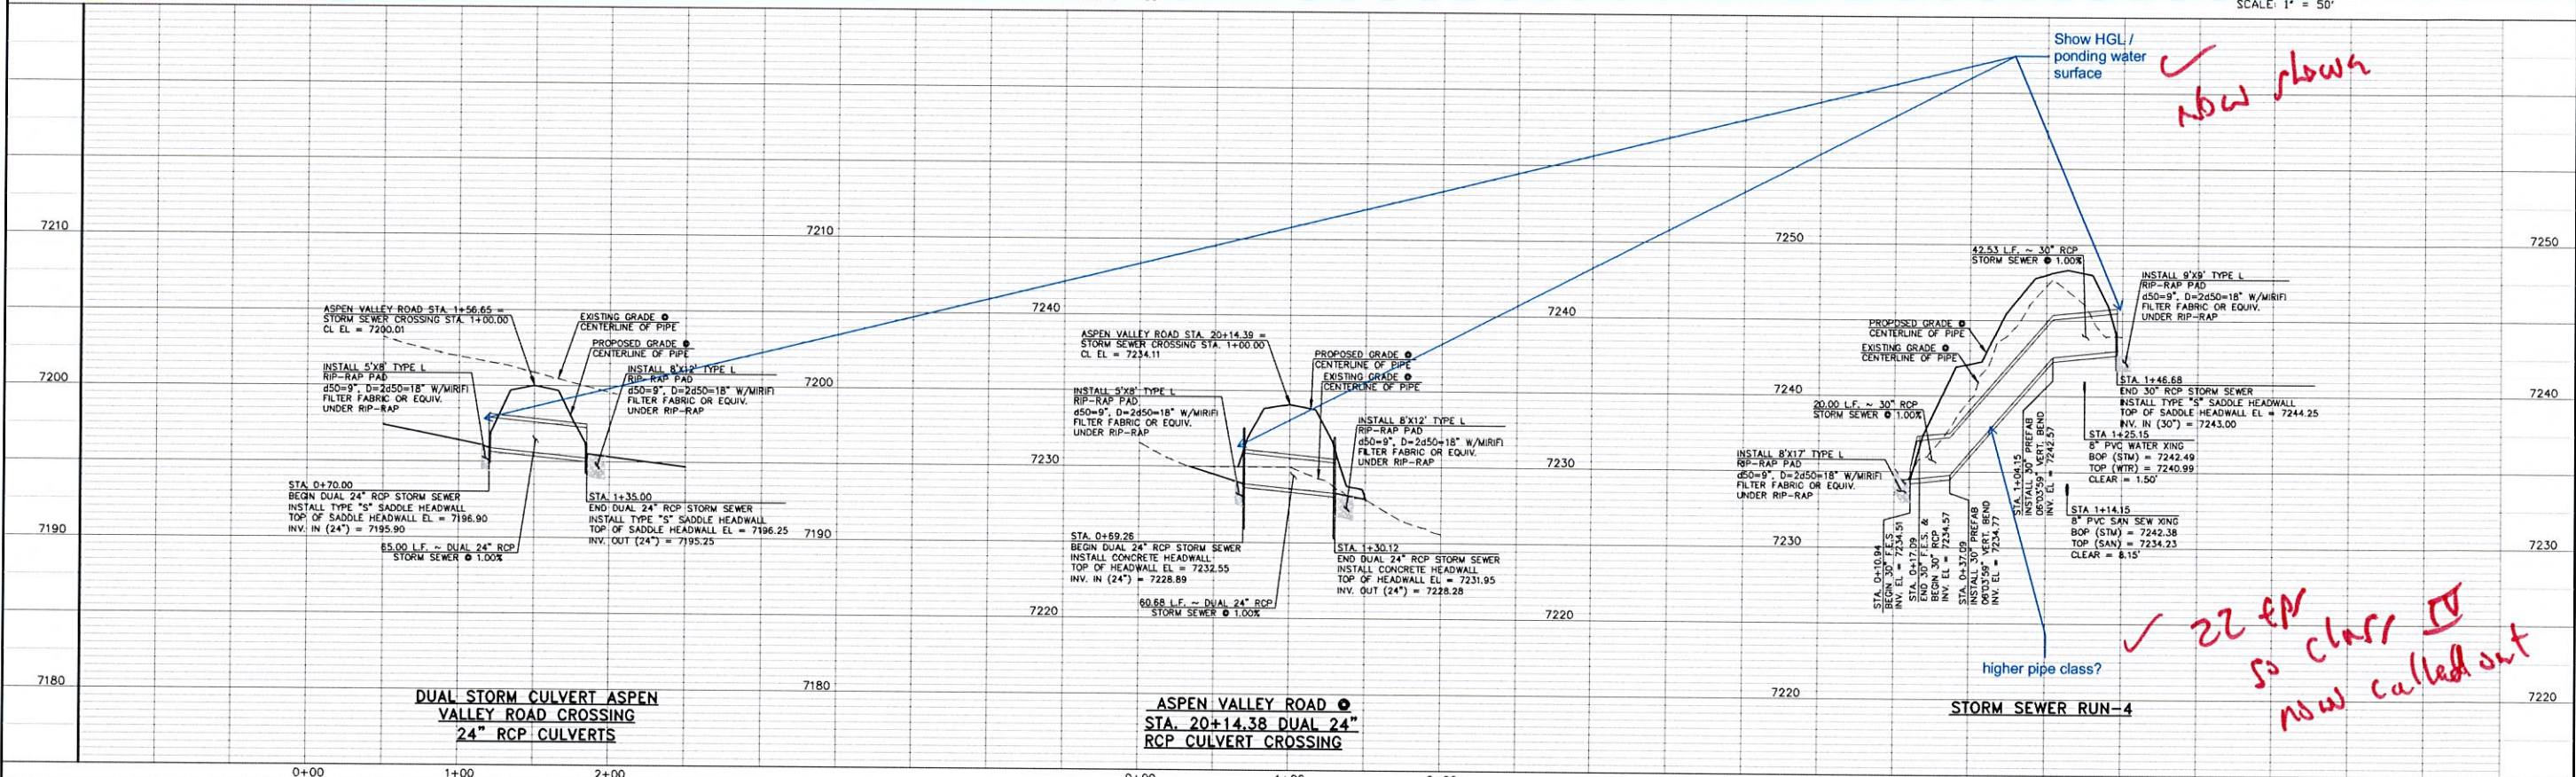 SCALE: 1" = 50'
Show HGL /
ponding water
surface
✓
Now shown
7210
7210
7250
7250
7240
7240
7200
7200
7240
7240
7230
7230
7190
7190
7230
7230
7220
7220
7180
7180
7220
7220
ASPEN VALLEY ROAD STA. 1+56.65 =
STORM SEWER CROSSING STA. 1+00.00
CL EL = 7200.01
EXISTING GRADE @
CENTERLINE OF PIPE
PROPOSED GRADE @
CENTERLINE OF PIPE
INSTALL 5'X8' TYPE L
RIP-RAP PAD
d50=9", D=2d50=18" W/MIRIFI
FILTER FABRIC OR EQUIV.
UNDER RIP-RAP
INSTALL 8'X12' TYPE L
RIP-RAP PAD
d50=9", D=2d50=18" W/MIRIFI
FILTER FABRIC OR EQUIV.
UNDER RIP-RAP
STA. 0+70.00
BEGIN DUAL 24" RCP STORM SEWER
INSTALL TYPE "S" SADDLE HEADWALL
TOP OF SADDLE HEADWALL EL = 7196.90
INV. IN (24") = 7195.90
STA. 1+35.00
END DUAL 24" RCP STORM SEWER
INSTALL TYPE "S" SADDLE HEADWALL
TOP OF SADDLE HEADWALL EL = 7196.25
INV. OUT (24") = 7195.25
65.00 L.F. ~ DUAL 24" RCP
STORM SEWER @ 1.00%
DUAL STORM CULVERT ASPEN
VALLEY ROAD CROSSING
24" RCP CULVERTS
0+00
1+00
2+00
ASPEN VALLEY ROAD STA. 20+14.39 =
STORM SEWER CROSSING STA. 1+00.00
CL EL = 7234.11
PROPOSED GRADE @
CENTERLINE OF PIPE
EXISTING GRADE @
CENTERLINE OF PIPE
INSTALL 5'X8' TYPE L
RIP-RAP PAD
d50=9", D=2d50=18" W/MIRIFI
FILTER FABRIC OR EQUIV.
UNDER RIP-RAP
INSTALL 8'X12' TYPE L
RIP-RAP PAD
d50=9", D=2d50=18" W/MIRIFI
FILTER FABRIC OR EQUIV.
UNDER RIP-RAP
STA. 0+69.26
BEGIN DUAL 24" RCP STORM SEWER
INSTALL CONCRETE HEADWALL
TOP OF HEADWALL EL = 7232.55
INV. IN (24") = 7228.89
STA. 1+30.12
END DUAL 24" RCP STORM SEWER
INSTALL CONCRETE HEADWALL
TOP OF HEADWALL EL = 7231.95
INV. OUT (24") = 7228.28
60.68 L.F. ~ DUAL 24" RCP
STORM SEWER @ 1.00%
ASPEN VALLEY ROAD @
STA. 20+14.38 DUAL 24"
RCP CULVERT CROSSING
42.53 L.F. ~ 30" RCP
STORM SEWER @ 1.00%
INSTALL 9'X9' TYPE L
RIP-RAP PAD
d50=9", D=2d50=18" W/MIRIFI
FILTER FABRIC OR EQUIV.
UNDER RIP-RAP
PROPOSED GRADE @
CENTERLINE OF PIPE
EXISTING GRADE @
CENTERLINE OF PIPE
20.00 L.F. ~ 30" RCP
STORM SEWER @ 1.00%
INSTALL 8'X17' TYPE L
RIP-RAP PAD
d50=9", D=2d50=18" W/MIRIFI
FILTER FABRIC OR EQUIV.
UNDER RIP-RAP
STA. 1+46.68
END 30" RCP STORM SEWER
INSTALL TYPE "S" SADDLE HEADWALL
TOP OF SADDLE HEADWALL EL = 7244.25
INV. IN (30") = 7243.00
STA 1+25.15
8" PVC WATER XING
BOP (STM) = 7242.49
TOP (WTR) = 7240.99
CLEAR = 1.50'
STA 1+14.15
8" PVC SAN SEW XING
BOP (STM) = 7242.38
TOP (SAN) = 7234.23
CLEAR = 8.15'
STA. 0+10.94
BEGIN 30" F.E.S.
INV. EL = 7234.51
STA. 0+17.09
END 30" F.E.S. &
BEGIN 30" RCP
INV. EL = 7234.57
STA. 0+37.09
INSTALL 30" PREFAB
06°03'59" VERT. BEND
INV. EL = 7234.77
STA. 1+04.15
INSTALL 30" PREFAB
06°03'59" VERT. BEND
INV. EL = 7242.57
higher pipe class?
✓ 22 fps
so class IV
now called out
STORM SEWER RUN-4